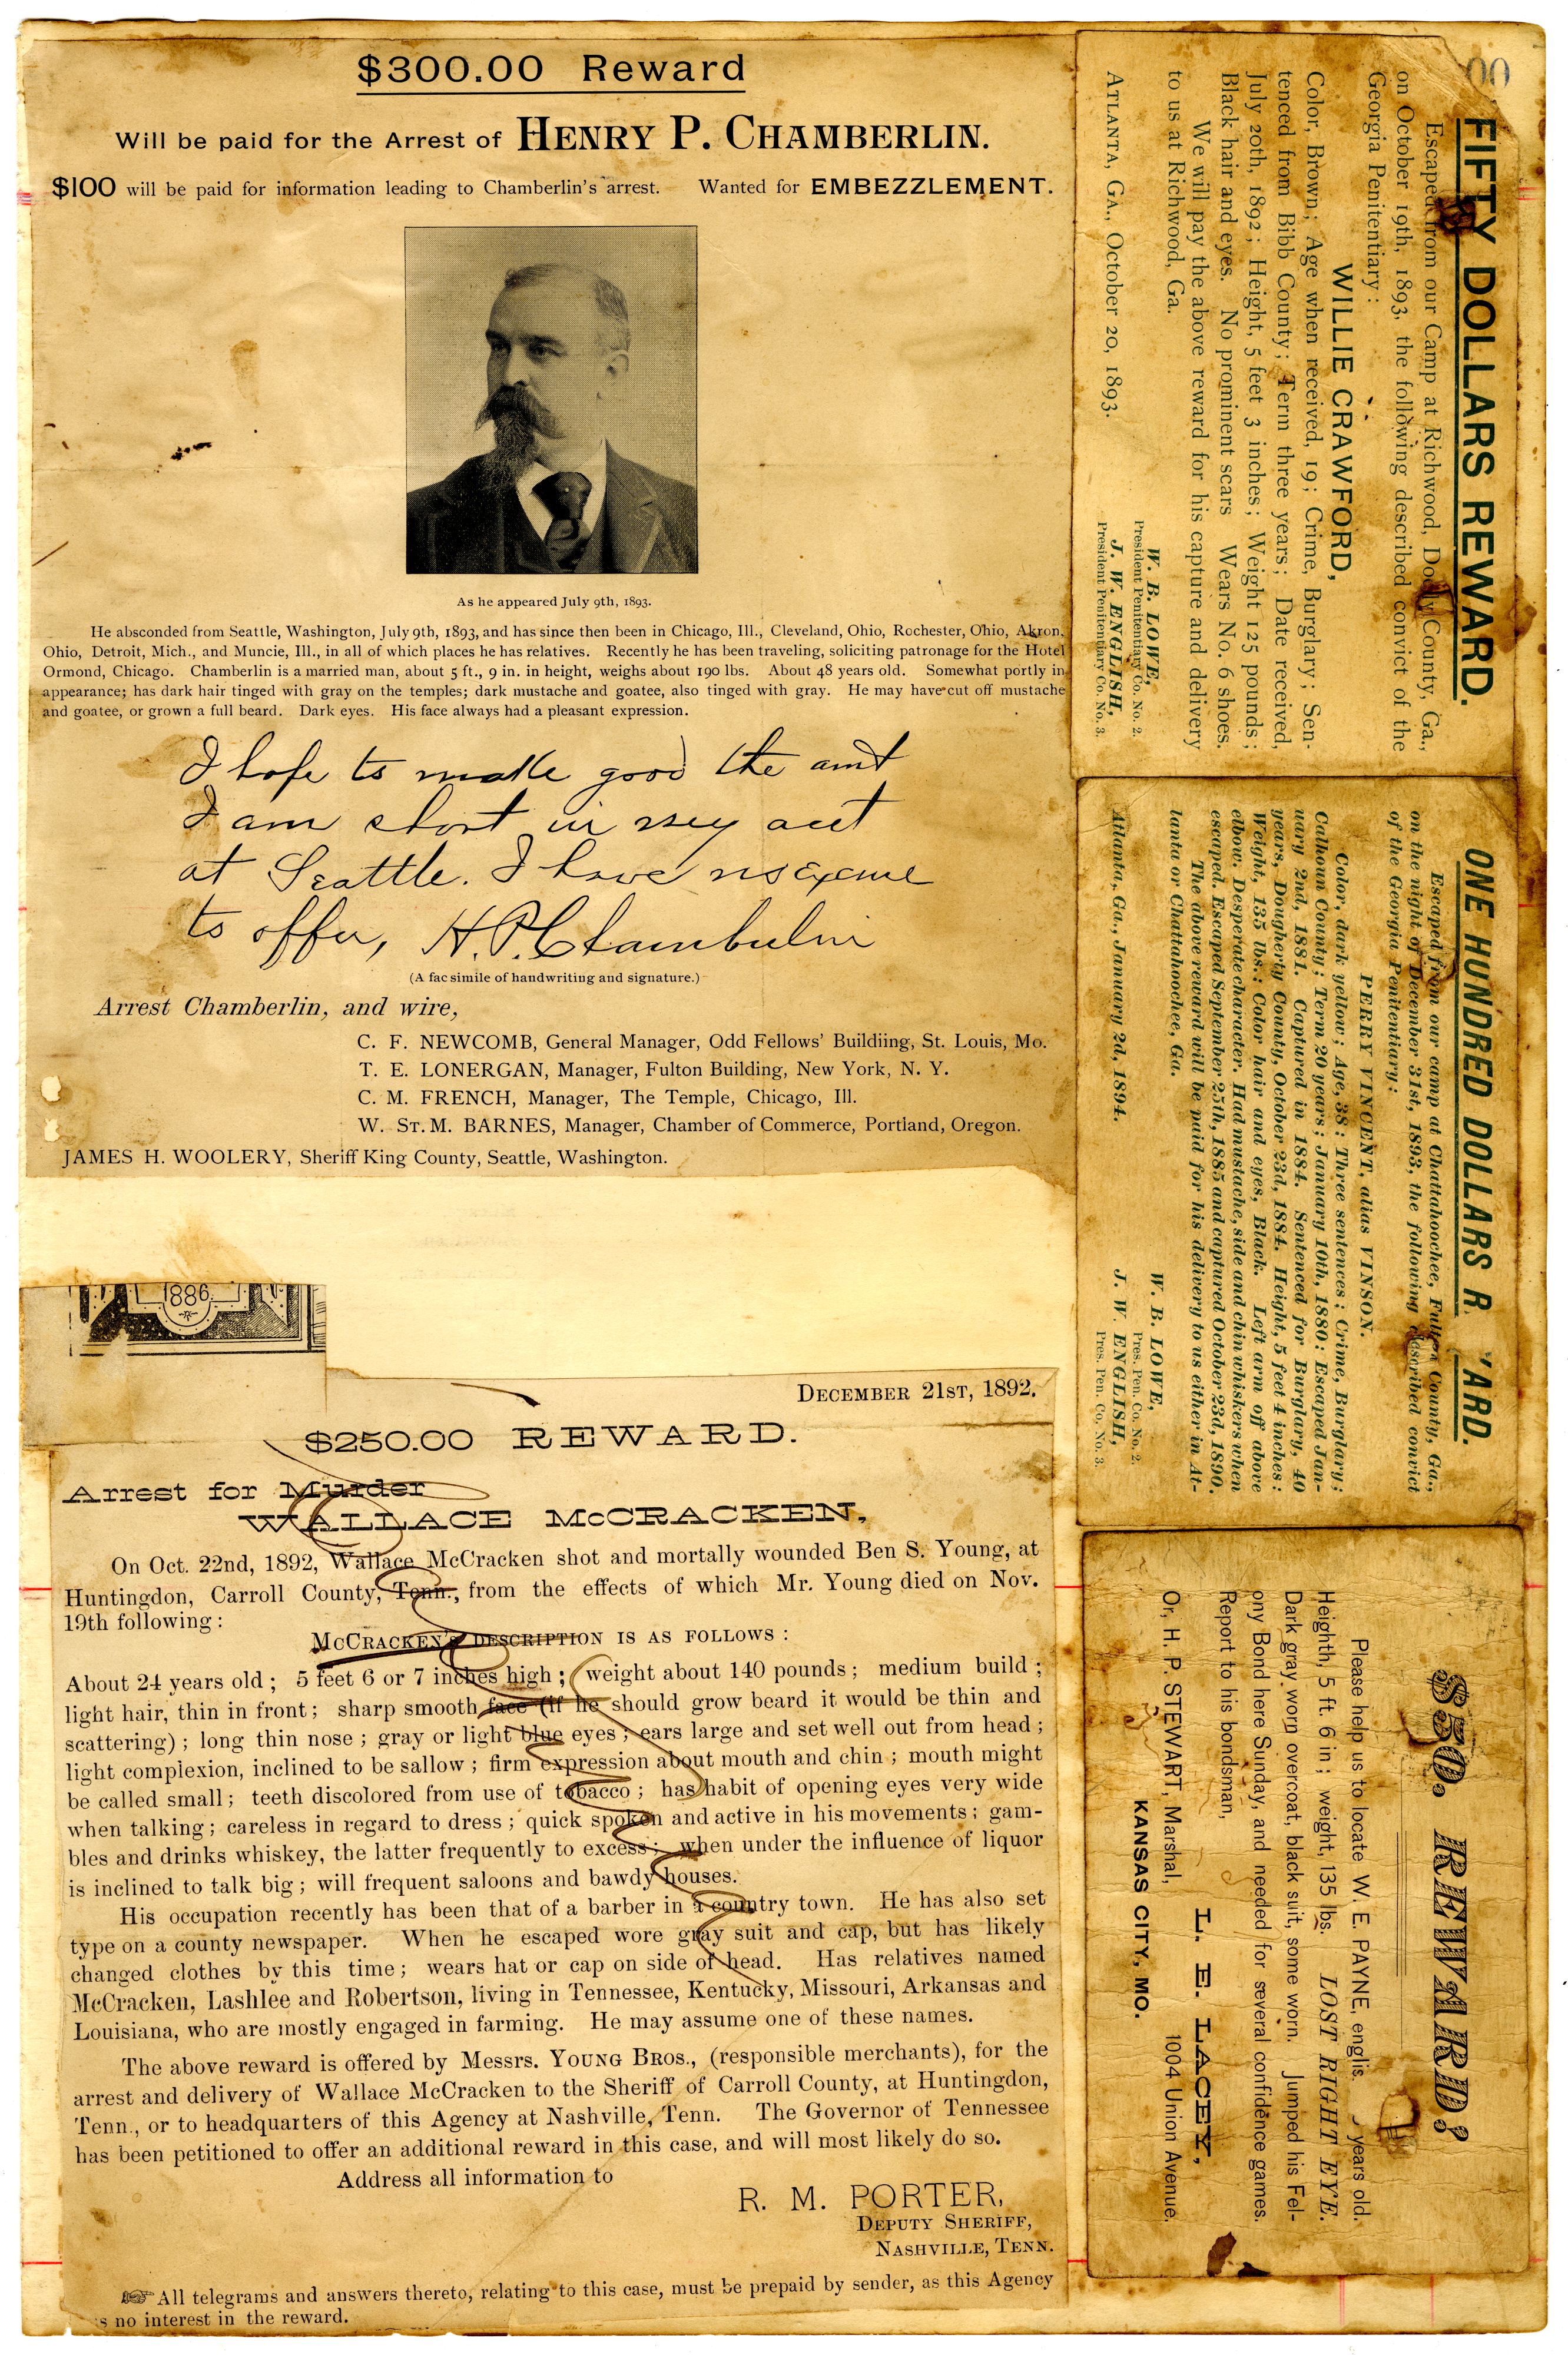 $300.00 Reward
Will be paid for the Arrest of HENRY P. CHAMBERLIN.
$100 will be paid for information leading to Chamberlin's arrest. Wanted for EMBEZZLEMENT.
As he appeared July 9th, 1893.
He absconded from Seattle, Washington, July 9th, 1893, and has since then been in Chicago, Ill., Cleveland, Ohio, Rochester, Ohio, Akron,
Ohio, Detroit, Mich., and Muncie, Ill., in all of which places he has relatives. Recently he has been traveling, soliciting patronage for the Hotel
Ormond, Chicago. Chamberlin is a married man, about 5 ft., 9 in. in height, weighs about 190 lbs. About 48 years old. Somewhat portly in
appearance; has dark hair tinged with gray on the temples; dark mustache and goatee, also tinged with gray. He may have cut off mustache
and goatee, or grown a full beard. Dark eyes. His face always had a pleasant expression.
I hope to make good the amt
I am short in my acct
at Seattle. I have no excuse
to offer, H. P. Chamberlin
(A fac simile of handwriting and signature.)
Arrest Chamberlin, and wire,
C. F. NEWCOMB, General Manager, Odd Fellows' Buildiing, St. Louis, Mo.
T. E. LONERGAN, Manager, Fulton Building, New York, N. Y.
C. M. FRENCH, Manager, The Temple, Chicago, Ill.
W. ST. M. BARNES, Manager, Chamber of Commerce, Portland, Oregon.
JAMES H. WOOLERY, Sheriff King County, Seattle, Washington.
1886
DECEMBER 21ST, 1892.
$250.00 REWARD.
Arrest for Murder
WALLACE McCRACKEN,
On Oct. 22nd, 1892, Wallace McCracken shot and mortally wounded Ben S. Young, at
Huntingdon, Carroll County, Tenn., from the effects of which Mr. Young died on Nov.
19th following:
MCCRACKEN'S DESCRIPTION IS AS FOLLOWS:
About 24 years old; 5 feet 6 or 7 inches high; weight about 140 pounds; medium build;
light hair, thin in front; sharp smooth face (if he should grow beard it would be thin and
scattering); long thin nose; gray or light blue eyes; ears large and set well out from head;
light complexion, inclined to be sallow; firm expression about mouth and chin; mouth might
be called small; teeth discolored from use of tobacco; has habit of opening eyes very wide
when talking; careless in regard to dress; quick spoken and active in his movements; gam-
bles and drinks whiskey, the latter frequently to excess; when under the influence of liquor
is inclined to talk big; will frequent saloons and bawdy houses.
His occupation recently has been that of a barber in a country town. He has also set
type on a county newspaper. When he escaped wore gray suit and cap, but has likely
changed clothes by this time; wears hat or cap on side of head. Has relatives named
McCracken, Lashlee and Robertson, living in Tennessee, Kentucky, Missouri, Arkansas and
Louisiana, who are mostly engaged in farming. He may assume one of these names.
The above reward is offered by Messrs. YOUNG BROS., (responsible merchants), for the
arrest and delivery of Wallace McCracken to the Sheriff of Carroll County, at Huntingdon,
Tenn., or to headquarters of this Agency at Nashville, Tenn. The Governor of Tennessee
has been petitioned to offer an additional reward in this case, and will most likely do so.
Address all information to
R. M. PORTER,
DEPUTY SHERIFF,
NASHVILLE, TENN.
☞ All telegrams and answers thereto, relating to this case, must be prepaid by sender, as this Agency
no interest in the reward.
00
FIFTY DOLLARS REWARD.
Escaped from our Camp at Richwood, Dooly County, Ga.,
on October 19th, 1893, the following described convict of the
Georgia Penitentiary:
WILLIE CRAWFORD,
Color, Brown; Age when received, 19; Crime, Burglary; Sen-
tenced from Bibb County; Term three years; Date received,
July 20th, 1892; Height, 5 feet 3 inches; Weight 125 pounds;
Black hair and eyes. No prominent scars Wears No. 6 shoes.
We will pay the above reward for his capture and delivery
to us at Richwood, Ga.
W. B. LOWE,
President Penitentiary Co. No. 2.
J. W. ENGLISH,
President Penitentiary Co. No. 3.
ATLANTA, GA., October 20, 1893.
ONE HUNDRED DOLLARS R ARD.
Escaped from our camp at Chattahoochee, Fulton County, Ga.,
on the night of December 31st, 1893, the following described convict
of the Georgia Penitentiary:
PERRY VINCENT, alias VINSON.
Color, dark yellow; Age, 38; Three sentences; Crime, Burglary;
Calhoun County; Term 20 years; January 10th, 1880; Escaped Jan-
uary 2nd, 1881. Captured in 1884. Sentenced for Burglary, 40
years, Dougherty County, October 23d, 1884. Height, 5 feet 4 inches;
Weight, 135 lbs.; Color hair and eyes, Black. Left arm off above
elbow. Desperate character. Had mustache, side and chin whiskers when
escaped. Escaped September 25th, 1885 and captured October 23d, 1890.
The above reward will be paid for his delivery to us either in At-
lanta or Chattahoochee, Ga.
W. B. LOWE,
Pres. Pen. Co. No. 2.
J. W. ENGLISH,
Pres. Pen. Co. No. 3.
Atlanta, Ga., January 2d, 1894.
$50. REWARD?
Please help us to locate W. E. PAYNE, englis. years old.
Heighth, 5 ft. 6 in; weight, 135 lbs. LOST RIGHT EYE.
Dark gray worn overcoat, black suit, some worn. Jumped his Fel-
ony Bond here Sunday, and needed for several confidence games.
Report to his bondsman,
L. E. LACEY,
1004 Union Avenue.
Or, H. P. STEWART, Marshal,
KANSAS CITY, MO.